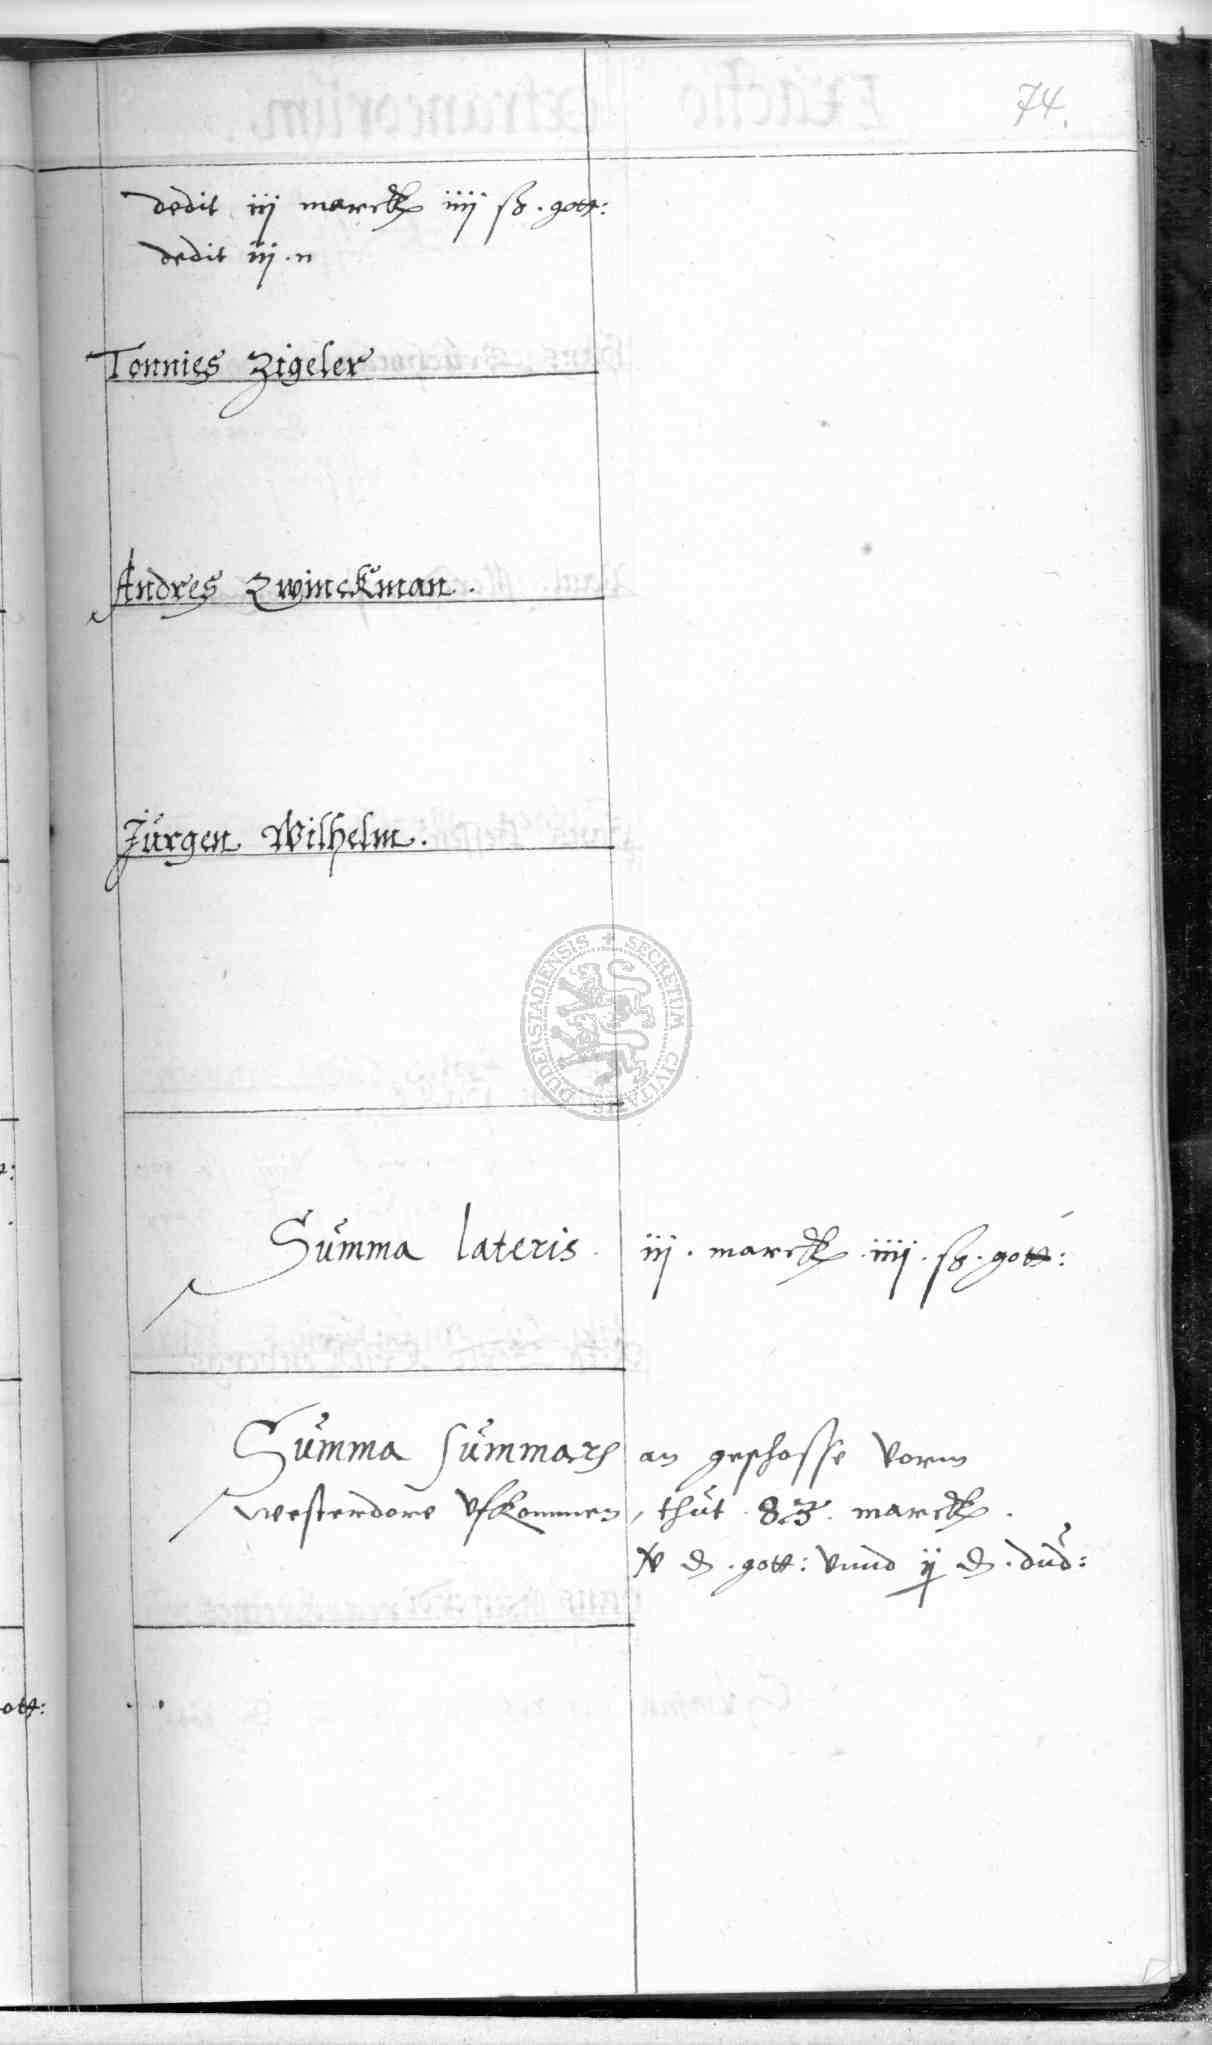 74.
dedit iij marck iiij ß. gott:
dedit iij. n
Tonnies Zigeler
Andres Zwinckman.
Jürgen Wilhelm.
SECRETUM CIVITATIS DUDERSTADIENSIS
Summa lateris. iij. marck .iiij. ß. gott:
Summa summarum an geschosse vorm
westerdore vfkommen, thut 83. marck.
iv ₰. gott: vnnd ij ₰. dud:
ott: